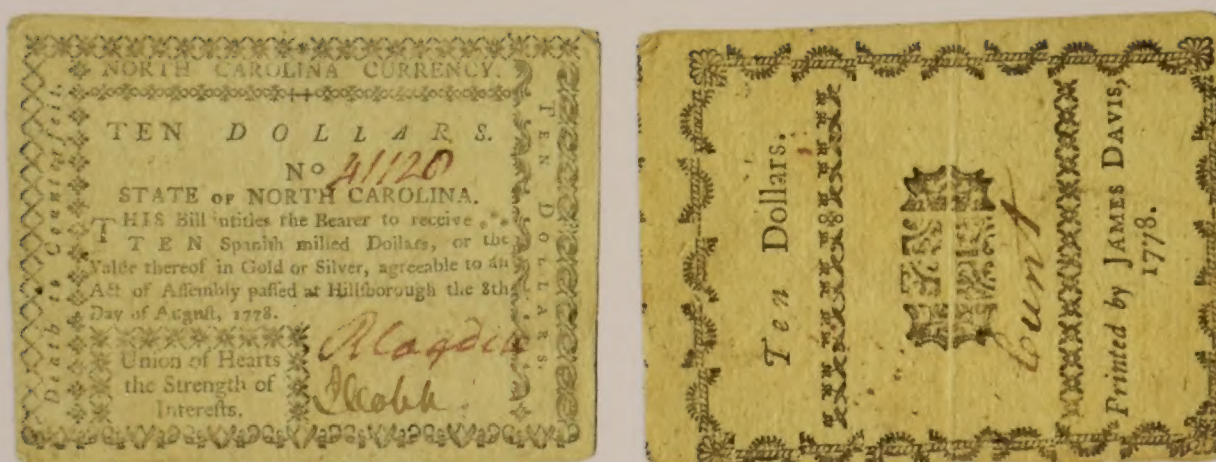 NORTH CAROLINA CURRENCY.
TEN DOLLARS.
No 41120
STATE OF NORTH CAROLINA.
THIS Bill intitles the Bearer to receive
TEN Spanish milled Dollars, or the
Value thereof in Gold or Silver, agreeable to an
Act of Assembly passed at Hillsborough the 8th
Day of August, 1778.
Union of Hearts
the Strength of
Interests.
Death to Counterfeit.
TEN DOLLARS.
JCobb
Ten Dollars.
Printed by JAMES DAVIS,
1778.